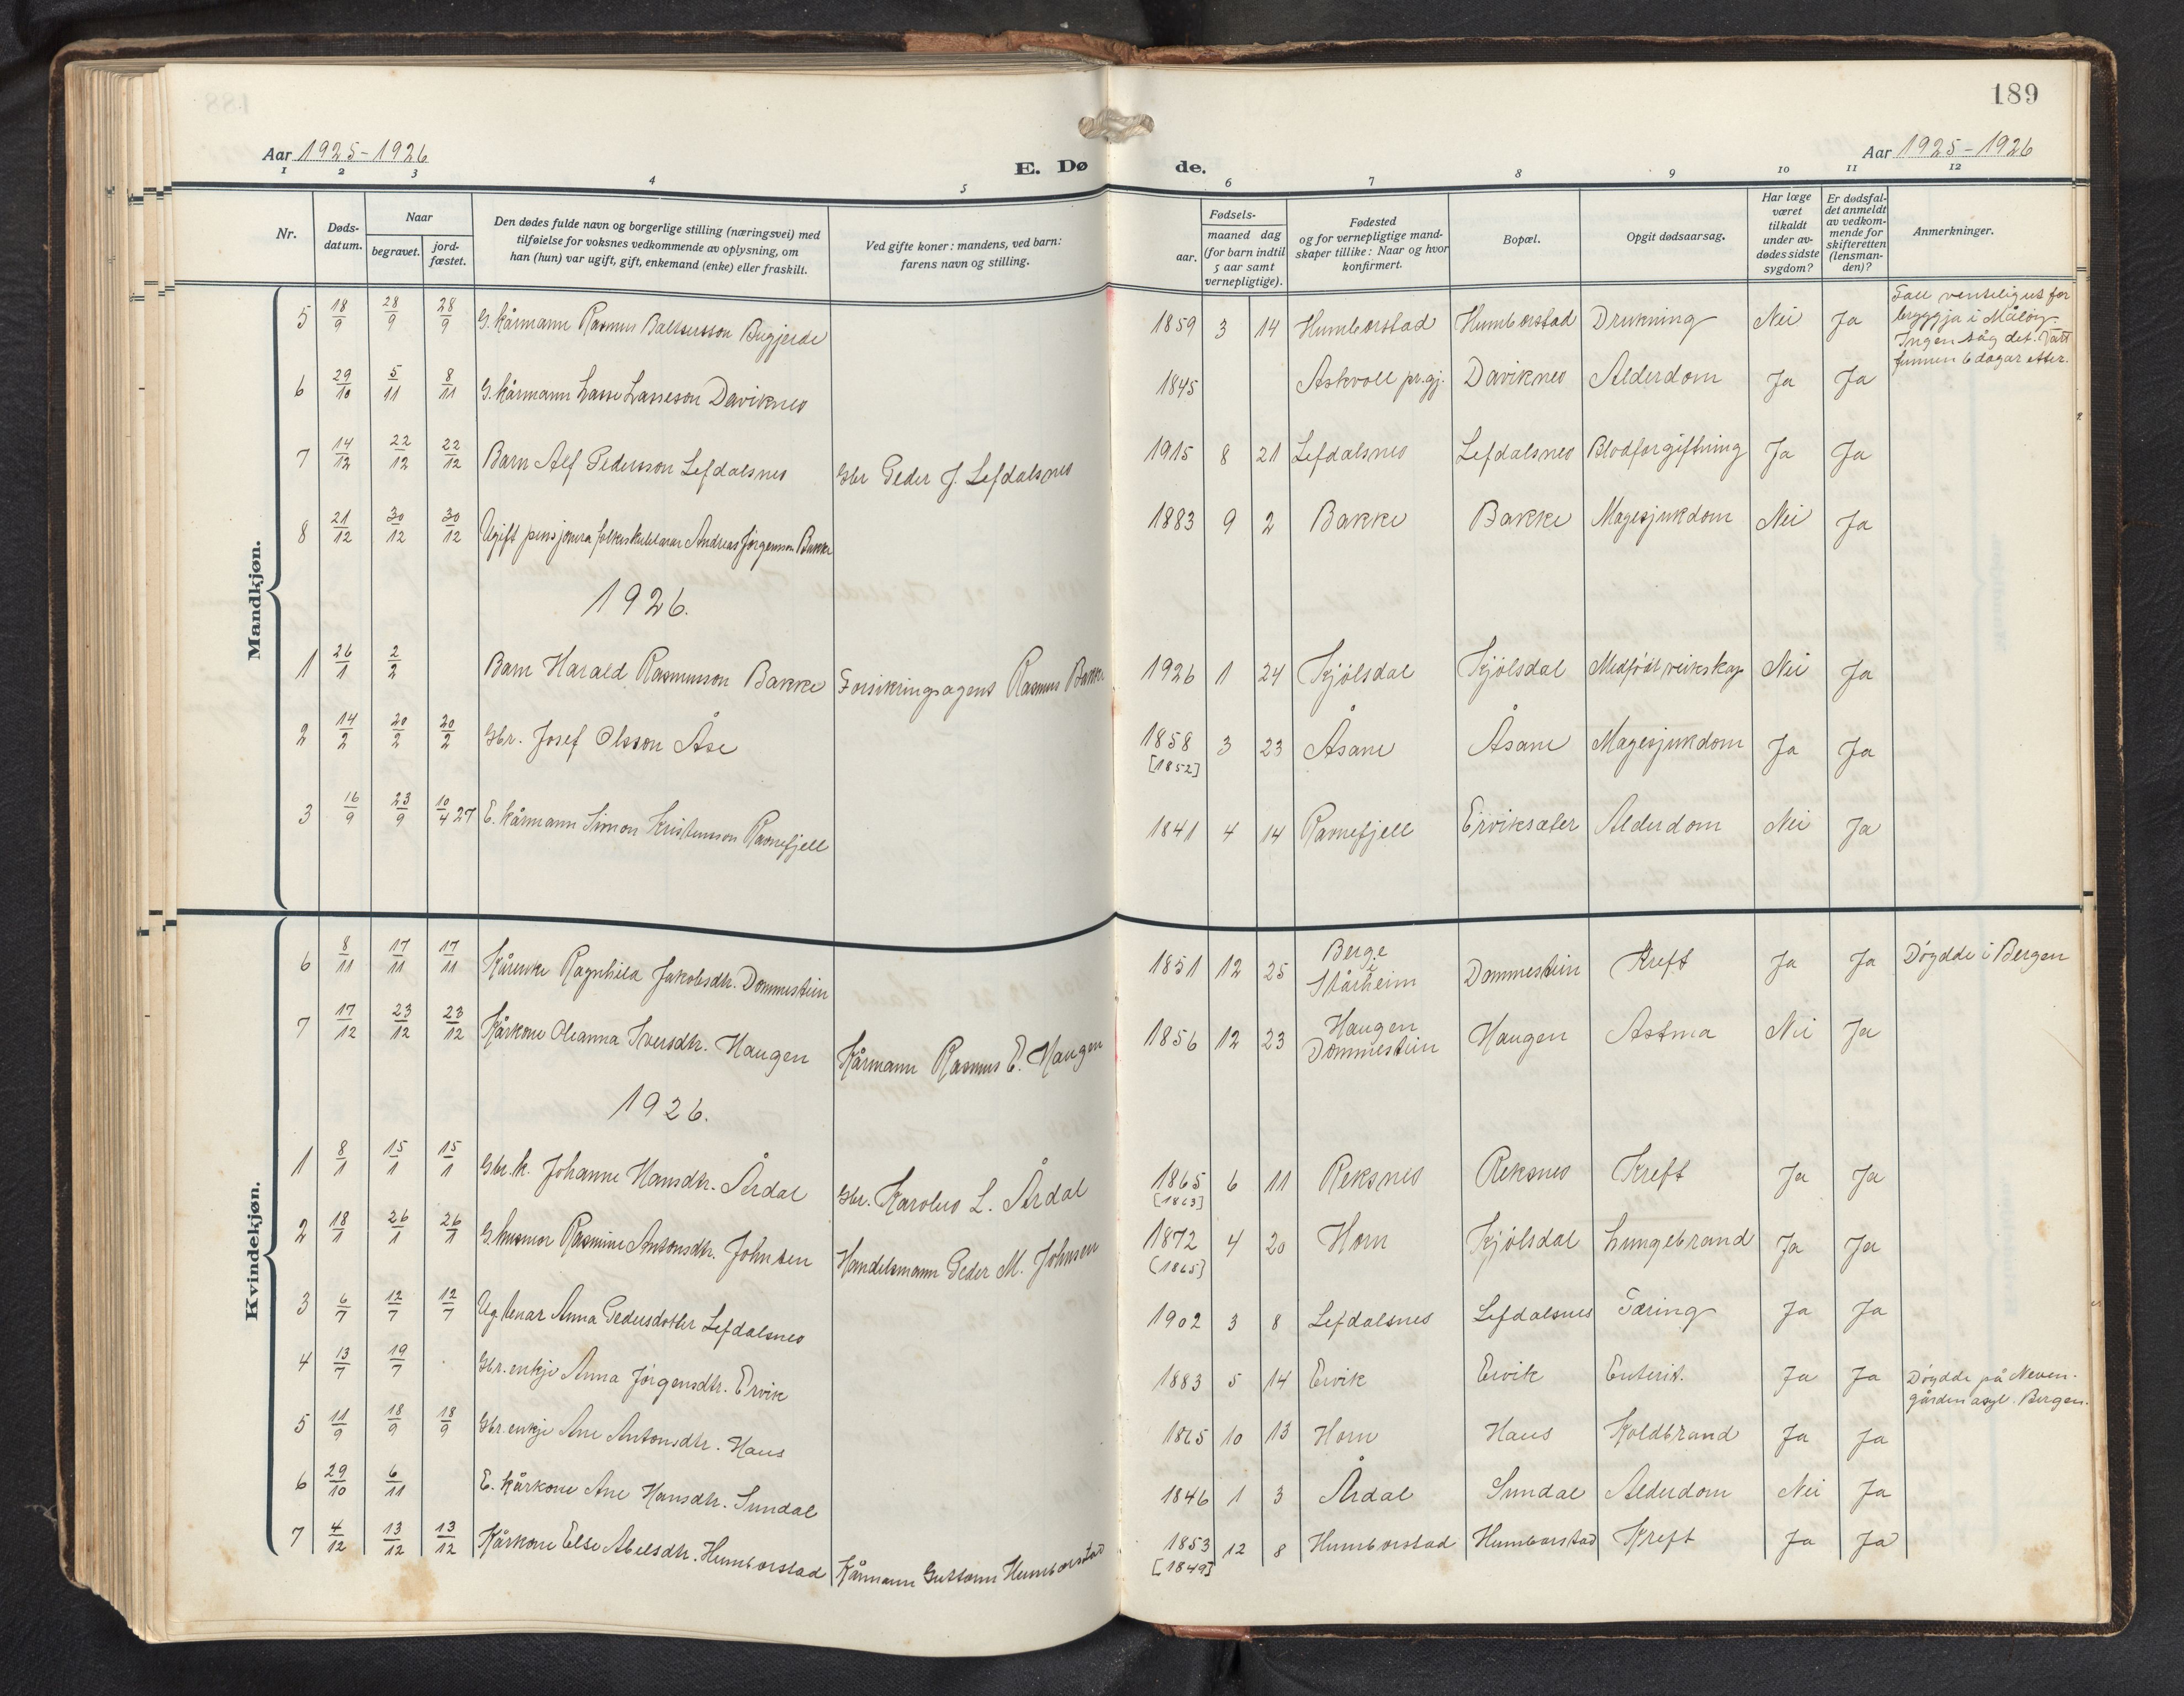 189
Aar 1925-1926
E. Dø
de.
Aar 1925-1926
1 2 3 4 5 6 7 8 9 10 11 12
Nr.
Døds-
datum.
Naar
begravet.
jord-
fæstet.
Den dødes fulde navn og borgerlige stilling (næringsvei) med
tilføielse for voksnes vedkommende av oplysning, om
han (hun) var ugift, gift, enkemand (enke) eller fraskilt.
Ved gifte koner: mandens, ved barn:
farens navn og stilling.
Fødsels-
aar.
maaned dag
(for barn indtil
5 aar samt
vernepligtige).
Fødested
og for vernepligtige mand-
skaper tillike: Naar og hvor
konfirmert.
Bopæl.
Opgit dødsaarsag.
Har læge
været
tilkaldt
under av-
dødes sidste
sygdom?
Er dødsfal-
det anmeldt
av vedkom-
mende for
skifteretten
(lensman-
den)?
Anmerkninger.
Mandkjøn.
5 18/9 28/9 28/9 G. kårmann Rasmus Baltsersson Bugjerde 1859 3 14 Humborstad Humborstad Drukning Nei Ja
Fall venteligut for
bryggja i Måløy.
Ingen såg det. Vart
funnen 6 dagar etter.
6 29/10 5/11 8/11 G. kårmann Lasse Lasseson Daviknes 1845 Askvoll pr.gj. Daviknes Alderdom Ja Ja
7 14/12 22/12 22/12 Barn Alf Pedersson Lefdalsnes Gbr Peder J. Lefdalsnes 1915 8 21 Lefdalsnes Lefdalsnes Blodforgiftning Ja Ja
8 21/12 30/12 30/12 Ugift pensjonera folkeskulelærar Andreas Jørgensson Bakke 1883 9 2 Bakke Bakke Magesjukdom Nei Ja
1926.
1 26/1 2/2 Barn Harald Rasmusson Bakke Forsikringsagent Rasmus Bakke 1926 1 24 Kjölsdal Kjölsdal Medfödt veikskap Nei Ja
2 14/2 20/2 20/2 Gbr. Josef Olsson Åse 1858 3 23 Åsane Åsane Magesjukdom Ja Ja
[1852]
3 16/9 23/9 10/4 27 E. kårmann Simon Kristensson Ravnefjell 1841 4 14 Ravnefjell Erviksæter Alderdom Nei Ja
Kvindekjøn.
6 8/11 17/11 17/11 Kårenke Ragnhila Jakobsdtr. Dommestein 1851 12 25 Berge i Stårheim Dommestein Kreft Ja Ja Döydde i Bergen
7 17/12 23/12 23/12 Kårkone Oleanna Iversdtr. Haugen Kårmann Rasmus E. Haugen 1856 12 23 Haugen Dommestein Haugen Astma Nei Ja
1926.
1 8/1 15/1 15/1 Gbr.k. Johanne Hansdtr. Årdal Gbr. Karolus L. Årdal 1865 6 11 Reksnes Reksnes Kreft Ja Ja
[1863]
2 18/1 26/1 26/1 G. husmor Rasmine Antonsdtr. Johnsen Handelsmann Peder M. Johnsen 1872 4 20 Horn Kjölsdal Lungebrand Ja Ja
[1865]
3 6/7 12/7 12/7 Ug. tenar Anna Pedersdotter Lefdalsnes 1902 3 8 Lefdalsnes Lefdalsnes Tæring Ja Ja
4 13/7 19/7 Gbr. enkje Anna Jörgensdtr. Ervik 1883 5 14 Ervik Ervik Enterit. Ja Ja
Döydde på Neven-
gården asyl. Bergen.
5 11/9 18/9 18/9 Gbr. enkje Ane Antonsdtr. Haus 1865 10 13 Horn Haus Koldbrand Ja Ja
6 29/10 6/11 E. kårkone Ane Hansdtr. Sundal 1846 1 3 Årdal Sundal Alderdom Nei Ja
7 4/12 13/12 13/12 Kårkone Else Abelsdtr. Humborstad Kårmann Guttorm Humborstad 1853 12 8 Humborstad Humborstad Kreft Ja Ja
[1849]